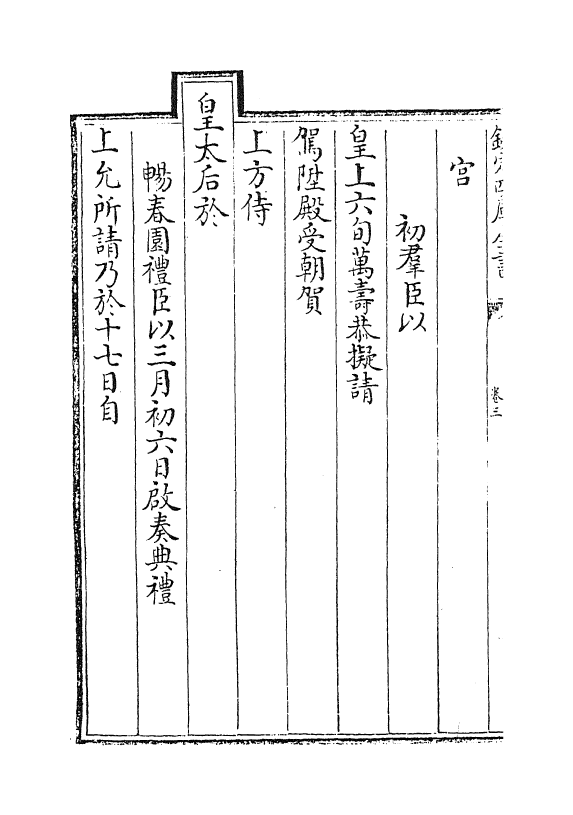 欽定四庫全書
卷三
宫
初羣臣以
皇上六旬萬壽恭擬請
駕陞殿受朝賀
上方侍
皇太后於
暢春園禮臣以三月初六日啟奏典禮
上允所請乃於十七日自